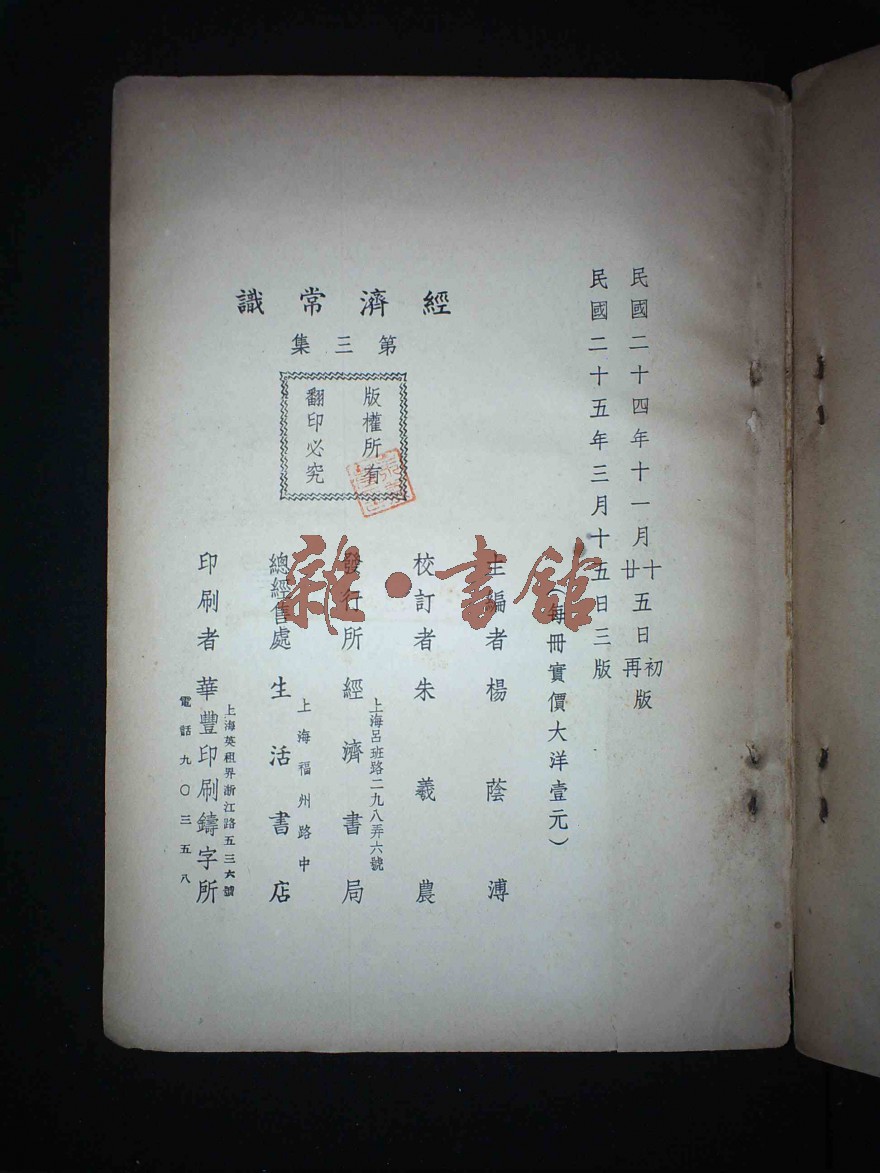 民國二十四年十一月十五日初版
廿五日再版
民國二十五年三月十五日三版
(每冊實價大洋壹元)
經濟常識
第三集
版權所有
翻印必究
主編者 楊蔭溥
校訂者 朱羲農
上海呂班路二九八弄六號
發行所 經濟書局
上海福州路中
總經售處 生活書店
上海英租界浙江路五三六號
印刷者 華豐印刷鑄字所
電話九〇三五八
雜·書館